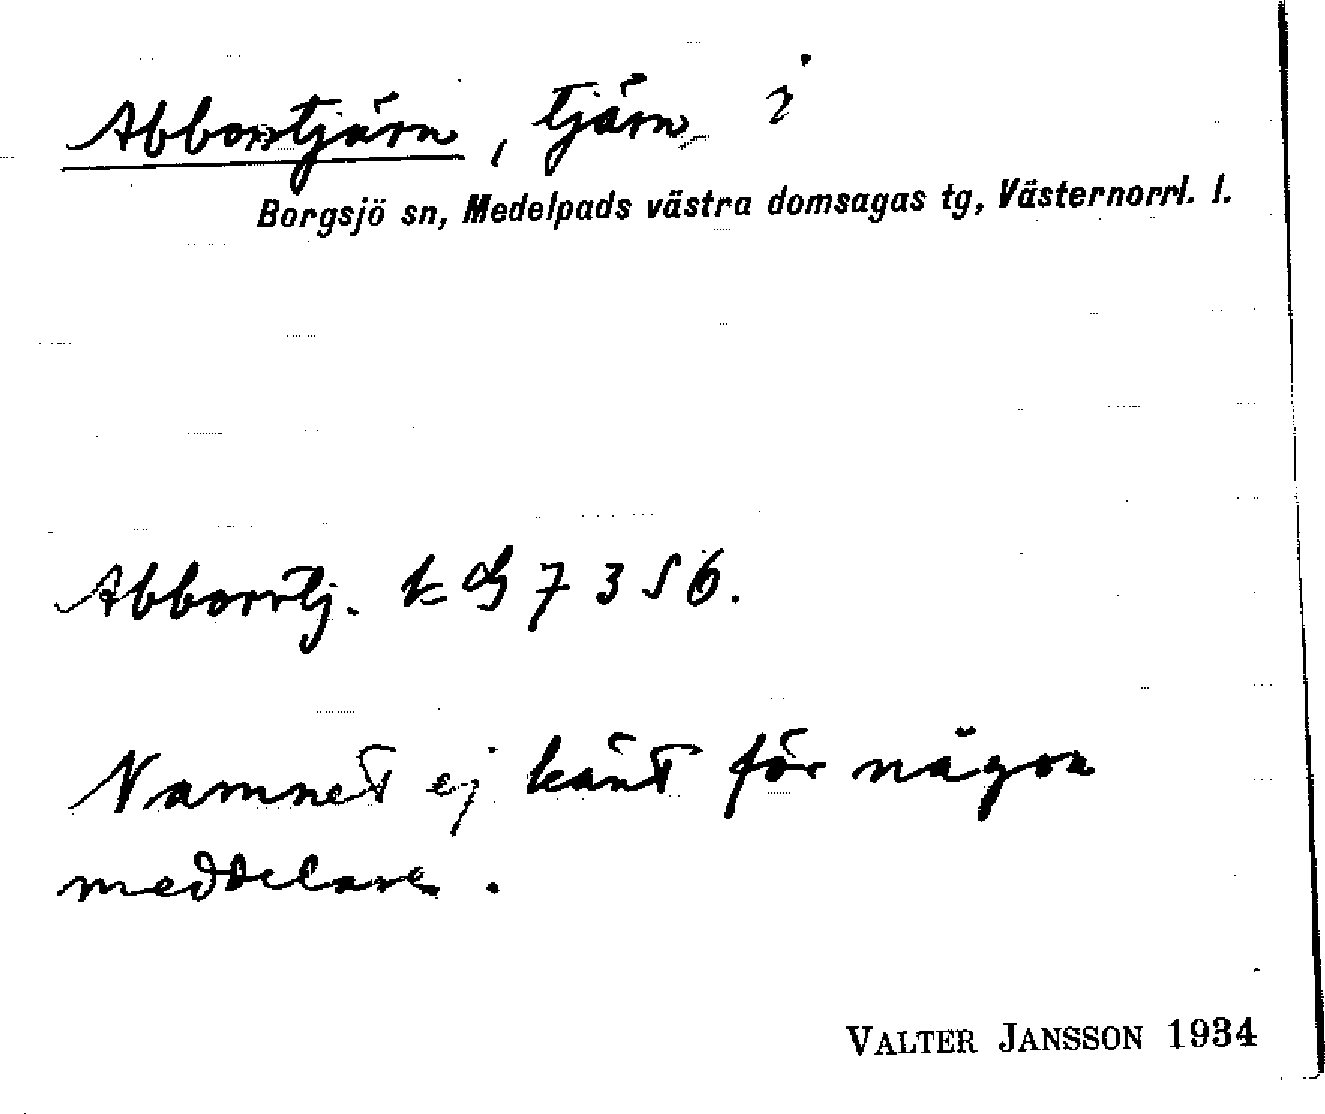 Abborrtjärn, tjärn i
Borgsjö sn, Medelpads västra domsagas tg, Västernorrl. l.
Abborrtj. k G 7 3 S 6.
Namnet ej känt för någon
meddelare.
VALTER JANSSON 1934